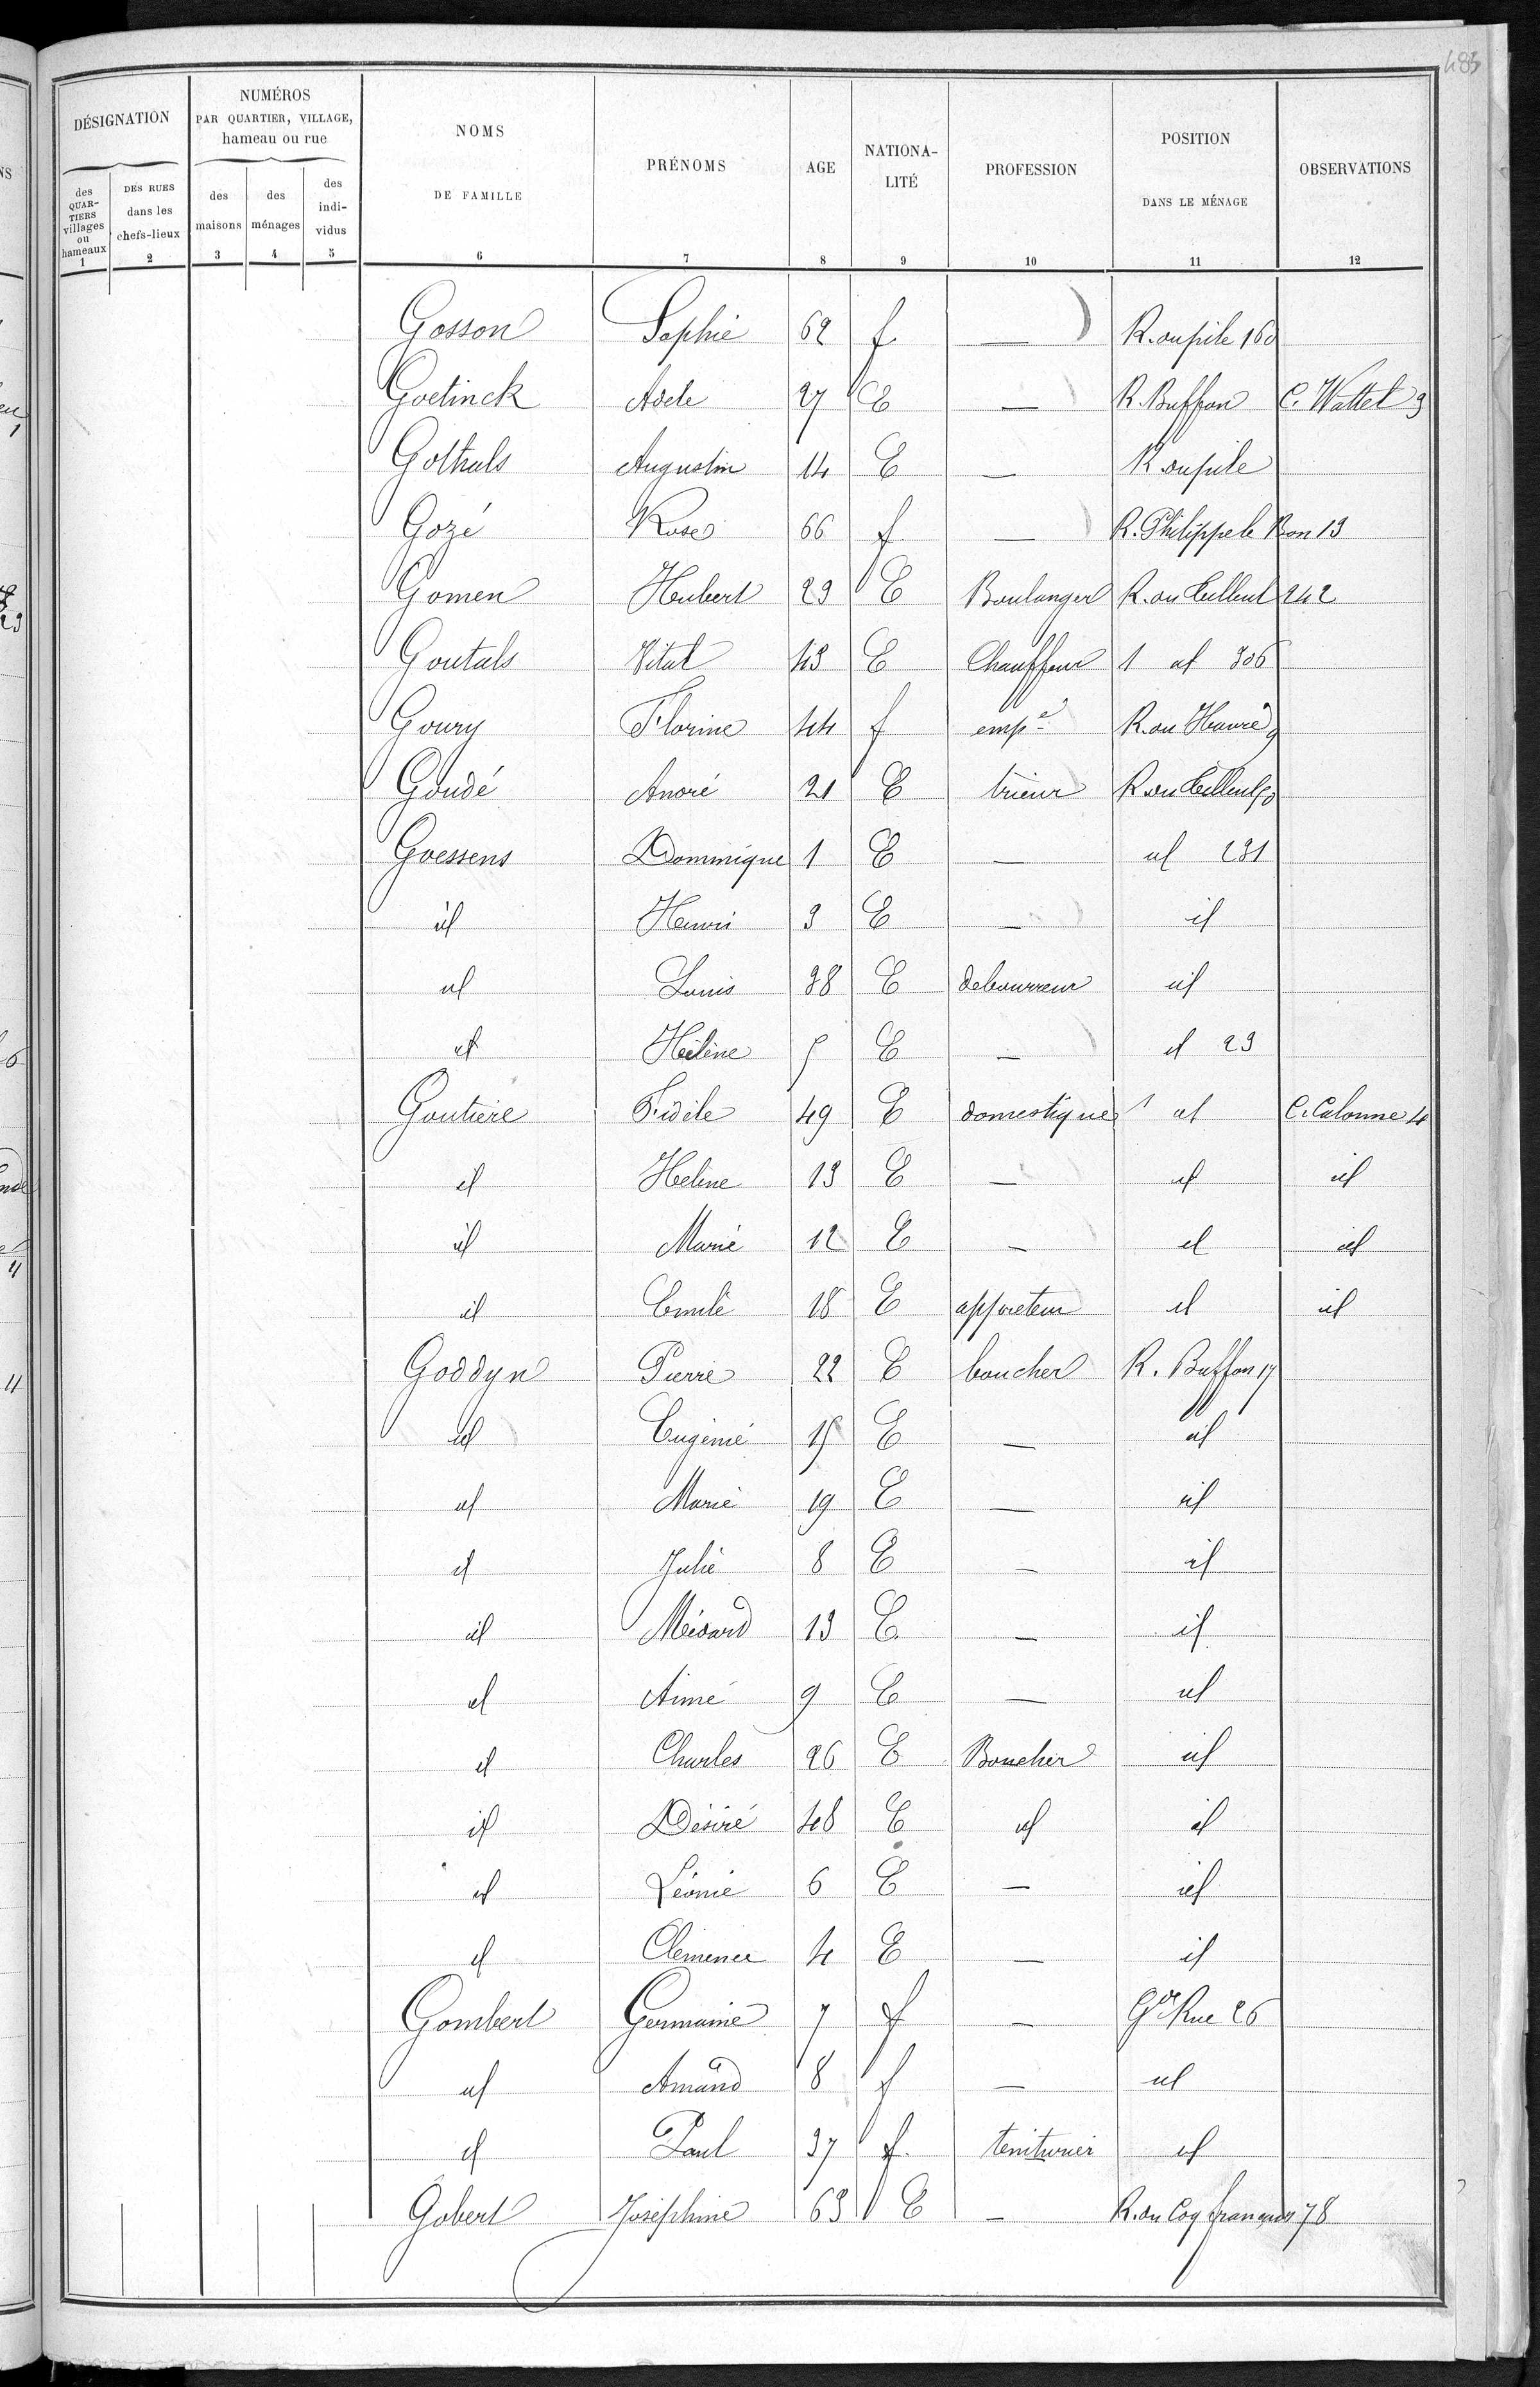 483
DÉSIGNATION
NUMÉROS
PAR QUARTIER, VILLAGE,
hameau ou rue
NOMS
DE FAMILLE
PRÉNOMS
AGE
NATIONA-
LITÉ
PROFESSION
POSITION
DANS LE MÉNAGE
OBSERVATIONS
des
QUAR-
TIERS
villages
ou
hameaux
DES RUES
dans les
chefs-lieux
des
maisons
des
ménages
des
indi-
vidus
1 2 3 4 5 6 7 8 9 10 11 12
Gosson Sophie 62 f — R. du pile 160
Goetinck Adele 27 E — R. Buffon C. Wattel 9
Gothals Augustin 14 E — R du pile
Gozé Rose 66 f — R. Philippe le Bon 13
Gomen Hubert 29 E Boulanger R. du Tilleul 242
Goutals Vital 43 E Chauffeur 1 id 306
Goury Florine 44 f empé R. du Havre 9
Goudé André 21 E trieur R du Tilleul 50
Goessens Dominique 1 E — id 231
id Henri 3 E — id
id Louis 38 E debourreur id
id Hélène 5 E — id 23
Goutière Fidèle 49 E domestique 1 id C. Calonne 4
id Helène 13 E — id id
id Marie 12 E — id id
id Emile 18 E appreteur id id
Goddyn Pierre 22 E boucher R. Buffon 17
id Eugénie 15 E — id
id Marie 19 E — id
id Julie 8 E — id
id Médard 13 E — id
id Aimé 9 E — id
id Charles 26 E Boucher id
id Désiré 48 E id id
id Léonie 6 E — id
id Clémence 4 E — id
Gombert Germaine 7 f — Gde Rue 26
id Amand 8 f — id
id Paul 37 f teinturier id
Gobert Joséphine 63 E — R. du Coq français 78